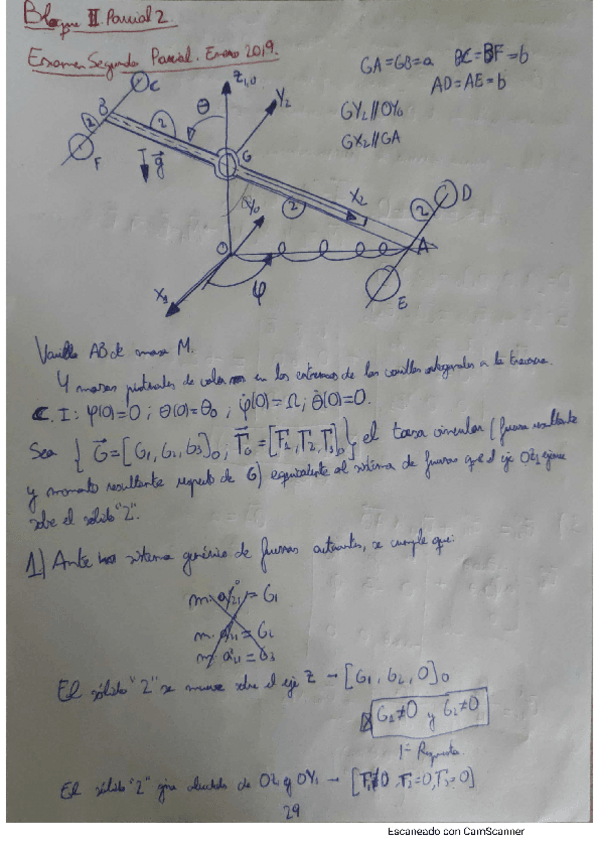 Bloque II Parcial 2.
Examen Segundo Parcial. Enero 2019.
GA=GB=a BC=BF=b
AD=AE=b
GY₂//OY₀
GX₂//GA
Z₁,₀
Y₂
C
B
θ
2
2
F
G
g
X₂
2
2
D
Y₀
O
A
E
X₀
φ
Varilla AB de masa M.
4 masas puntuales de valor m en los extremos de las varillas ortogonales a la
C.I: φ(0)=0 ; θ(0)=θ₀ ; φ̇(0)=Ω ; θ̇(0)=0.
Sea { G=[G₁, G₂, G₃]₀ ; Γ_G=[Γ₁, Γ₂, Γ₃]₀ } el torsor vincular (fuerza resultante
y momento resultante respecto de G) equivalente al sistema de fuerzas que el eje OZ₁ ejerce
sobre el sólido "2".
1) Ante un sistema genérico de fuerzas actuantes, se cumple que:
= G₁
= G₂
= G₃
El sólido "2" se mueve sobre el eje Z → [G₁, G₂, 0]₀
G₁≠0 y G₂≠0
1ª Respuesta
El sólido "2" gira alrededor de OZ₁ y OY₁ → [Γ₁≠0, Γ₂=0, Γ₃=0]
29
Escaneado con CamScanner